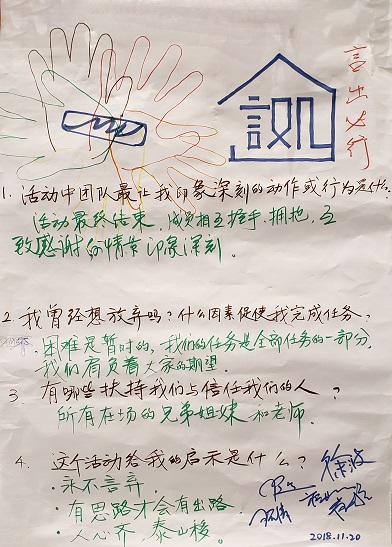 言出必行
1. 活动中团队最让我印象深刻的动作或行为是什么.
活动最终结束,成员相互握手、拥抱,互
致感谢的情节印象深刻。
2 我曾经想放弃吗?什么因素促使我完成任务?
困难是暂时的,我们的任务是全部任务的一部分,
我们肩负着大家的期望.
3. 有哪些扶持我们与信任我们的人?
所有在场的兄弟姐妹和老师.
4. 这个活动给我的启示是什么?
·永不言弃.
·有思路才会有出路
·人心齐 泰山移.
徐波
2018.11.20